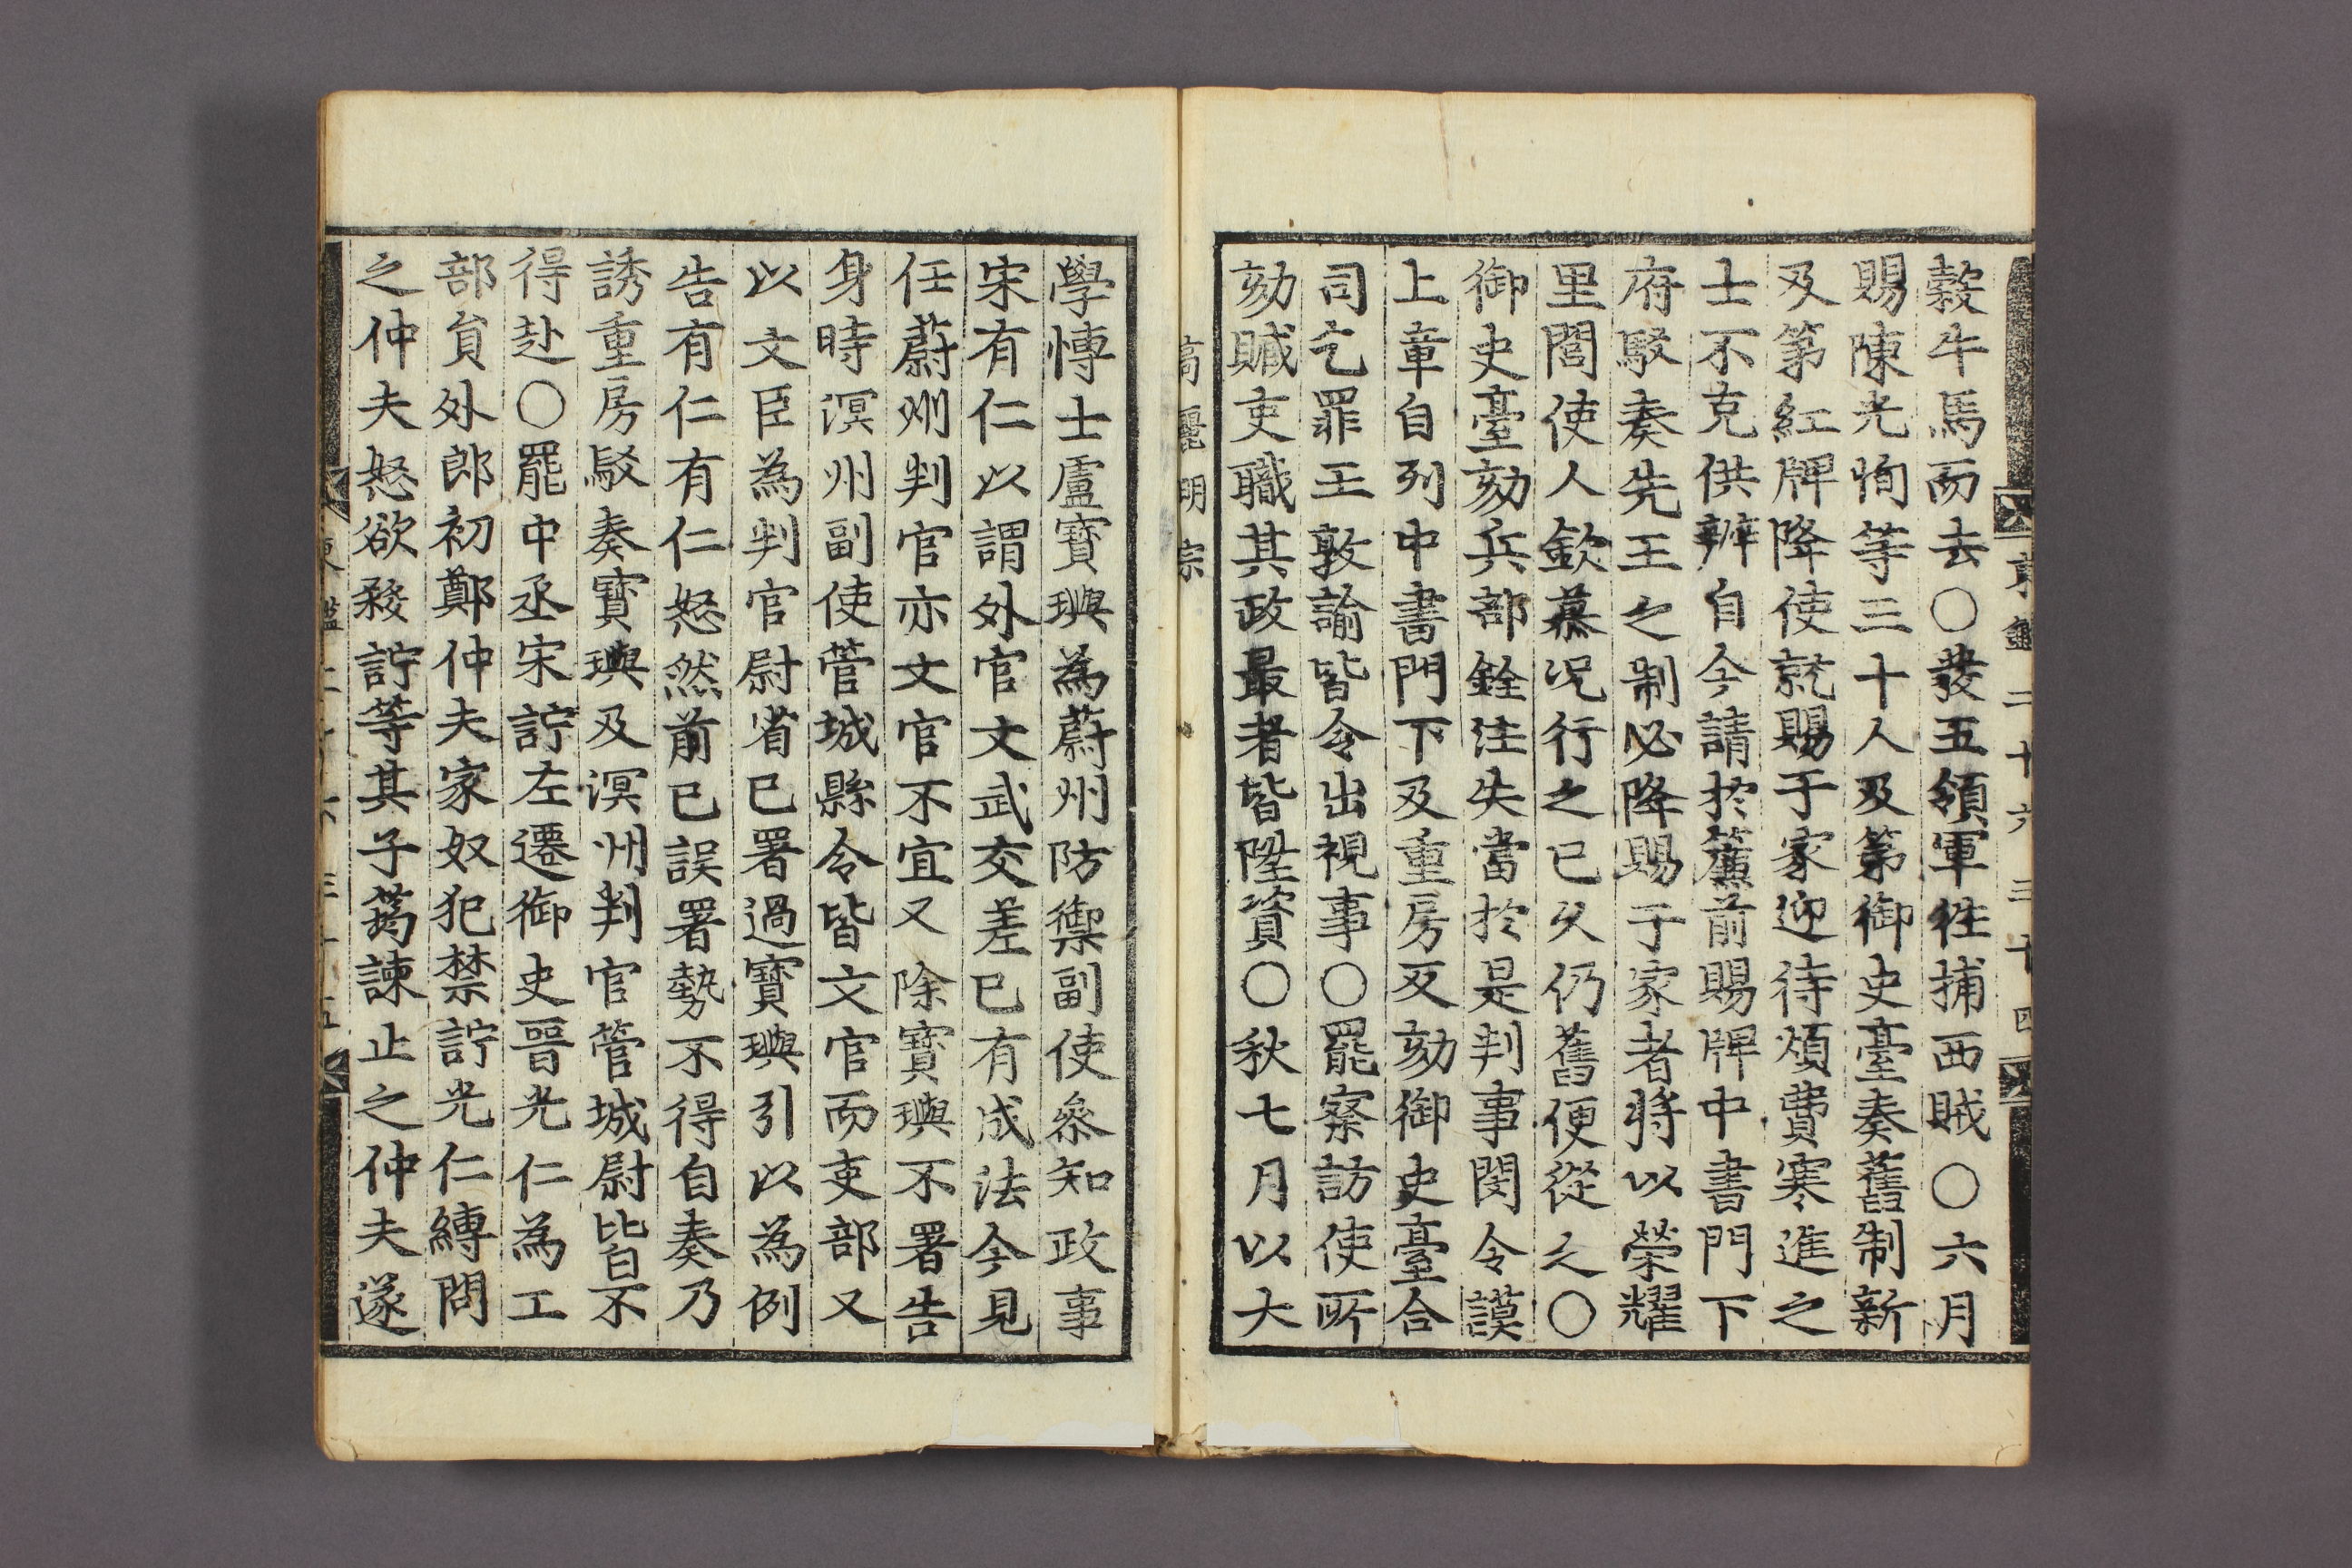 穀牛馬而去○發五領軍往捕西賊○六月
賜陳光恂等三十人及第御史臺奏舊制新
及第紅牌降使就賜于家迎待煩費寒進之
士不克供辦自今請於簾前賜牌中書門下
府駁奏先王之制必降賜于家者將以榮耀
里閭使人歆慕况行之已久仍舊便從之○
御史臺劾兵部銓注失當於是判事閔令謨
上章自列中書門下及重房又劾御史臺合
司乞罪王敦諭皆令出視事○罷察訪使所
劾贓吏職其政最者皆陞資○秋七月以大
高麗明宗
學博士盧寶璵為蔚州防禦副使叅知政事
宋有仁以謂外官文武交差已有成法今見
任蔚州判官亦文官不宜又除寶璵不署告
身時溟州副使菅城縣令皆文官而吏部又
以文臣為判官尉省已署過寶璵引以為例
告有仁有仁怒然前已誤署勢不得自奏乃
誘重房駁奏寶璵及溟州判官管城尉皆不
得赴○罷中丞宋詝左遷御史晉光仁為工
部貟外郎初鄭仲夫家奴犯禁詝光仁縛問
之仲夫怒欲殺詝等其子筠諫止之仲夫遂